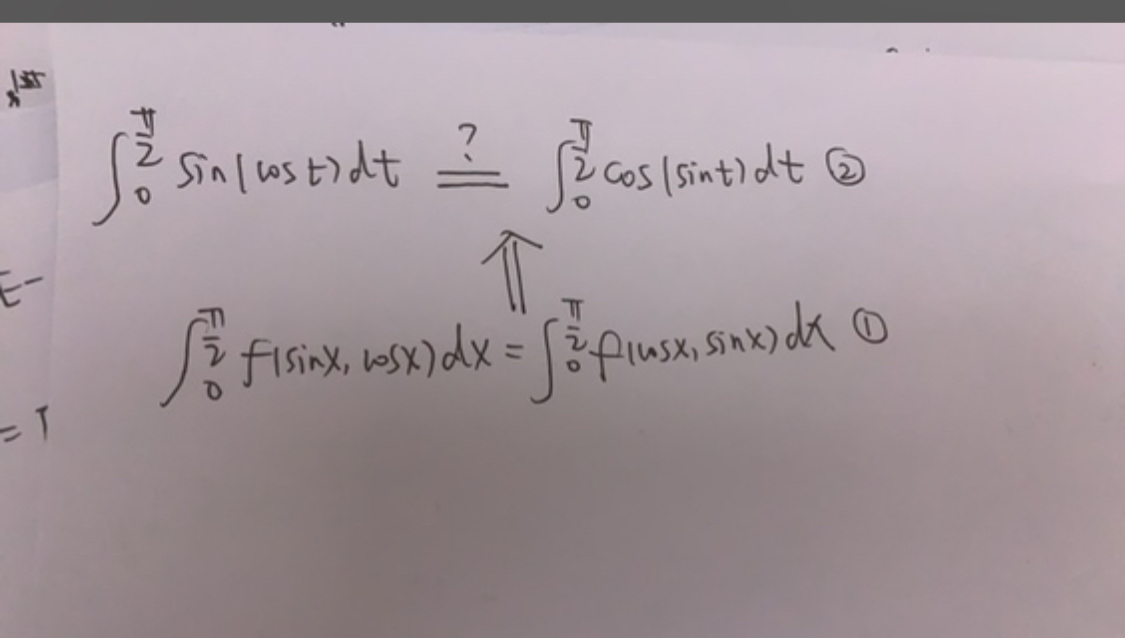 ∫₀^(π/2) sin(cos t)dt ≟ ∫₀^(π/2) cos(sin t)dt ②
⇑
∫₀^(π/2) f(sinx, cosx)dx = ∫₀^(π/2) f(cosx, sinx)dx ①
E-
= T